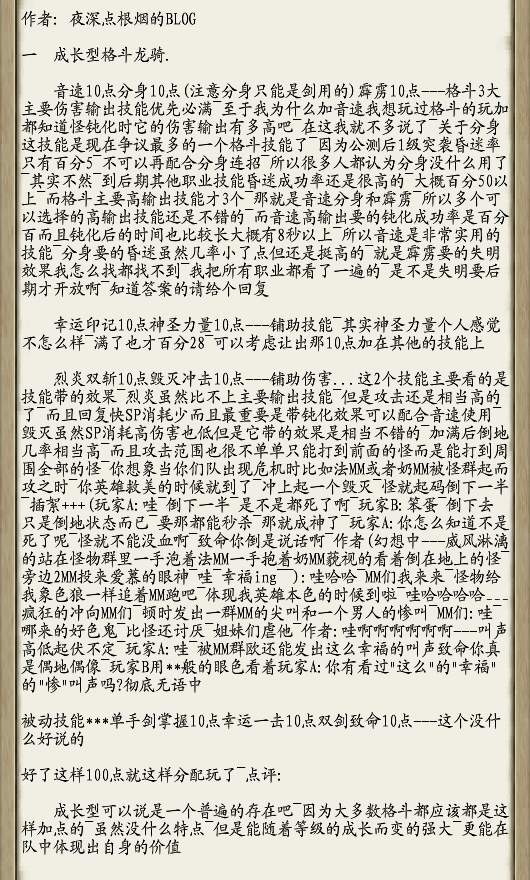 作者: 夜深点根烟的BLOG
一　成长型格斗龙骑.
音速10点分身10点(注意分身只能是剑用的)霹雳10点---格斗3大
主要伤害输出技能优先必满~至于我为什么加音速我想玩过格斗的玩加
都知道怪钝化时它的伤害输出有多高吧~在这我就不多说了~关于分身
这技能是现在争议最多的一个格斗技能了~因为公测后1级突袭昏迷率
只有百分5~不可以再配合分身连招~所以很多人都认为分身没什么用了
~其实不然~到后期其他职业技能昏迷成功率还是很高的~大概百分50以
上~而格斗主要高输出技能才3个~那就是音速分身和霹雳~所以多个可
以选择的高输出技能还是不错的~而音速高输出要的钝化成功率是百分
百而且钝化后的时间也比较长大概有8秒以上~所以音速是非常实用的
技能~分身要的昏迷虽然几率小了点但还是挺高的~就是霹雳要的失明
效果我怎么找都找不到~我把所有职业都看了一遍的~是不是失明要后
期才开放啊~知道答案的请给个回复
幸运印记10点神圣力量10点---铺助技能~其实神圣力量个人感觉
不怎么样~满了也才百分28~可以考虑让出那10点加在其他的技能上
烈炎双斩10点毁灭冲击10点---铺助伤害...这2个技能主要看的是
技能带的效果~烈炎虽然比不上主要输出技能~但是攻击还是相当高的
了~而且回复快SP消耗少而且最重要是带钝化效果可以配合音速使用~
毁灭虽然SP消耗高伤害也低但是它带的效果是相当不错的~加满后倒地
几率相当高~而且攻击范围也很不单单只能打到前面的怪而是能打到周
围全部的怪~你想象当你们队出现危机时比如法MM或者奶MM被怪群起而
攻之时~你英雄救美的时候就到了~冲上起一个毁灭~怪就起码倒下一半
~插絮+++(玩家A: 哇~倒下一半~是不是都死了啊~玩家B: 笨蛋~倒下去
只是倒地状态而已~要那都能秒杀~那就成神了~玩家A: 你怎么知道不是
死了呢~怪就不能没血啊~致命你倒是说话啊~作者(幻想中---威风淋漓
的站在怪物群里一手泡着法MM一手抱着奶MM藐视的看着倒在地上的怪~
旁边2MM投来爱慕的眼神~哇~幸福ing~): 哇哈哈~MM们我来来~怪物给
我象色狼一样追着MM跑吧~体现我英雄本色的时候到啦~哇哈哈哈哈___
疯狂的冲向MM们~顿时发出一群MM的尖叫和一个男人的惨叫~MM们: 哇~
哪来的好色鬼~比怪还讨厌~姐妹们虐他~作者: 哇啊啊啊啊啊啊---叫声
高低起伏不定~玩家A: 哇~被MM群欧还能发出这么幸福的叫声致命你真
是偶地偶像~玩家B用**般的眼色看着玩家A: 你有看过"这么"的"幸福"
的"惨"叫声吗?彻底无语中
被动技能***单手剑掌握10点幸运一击10点双剑致命10点---这个没什
么好说的
好了这样100点就这样分配玩了~点评:
成长型可以说是一个普遍的存在吧~因为大多数格斗都应该都是这
样加点的~虽然没什么特点~但是能随着等级的成长而变的强大~更能在
队中体现出自身的价值